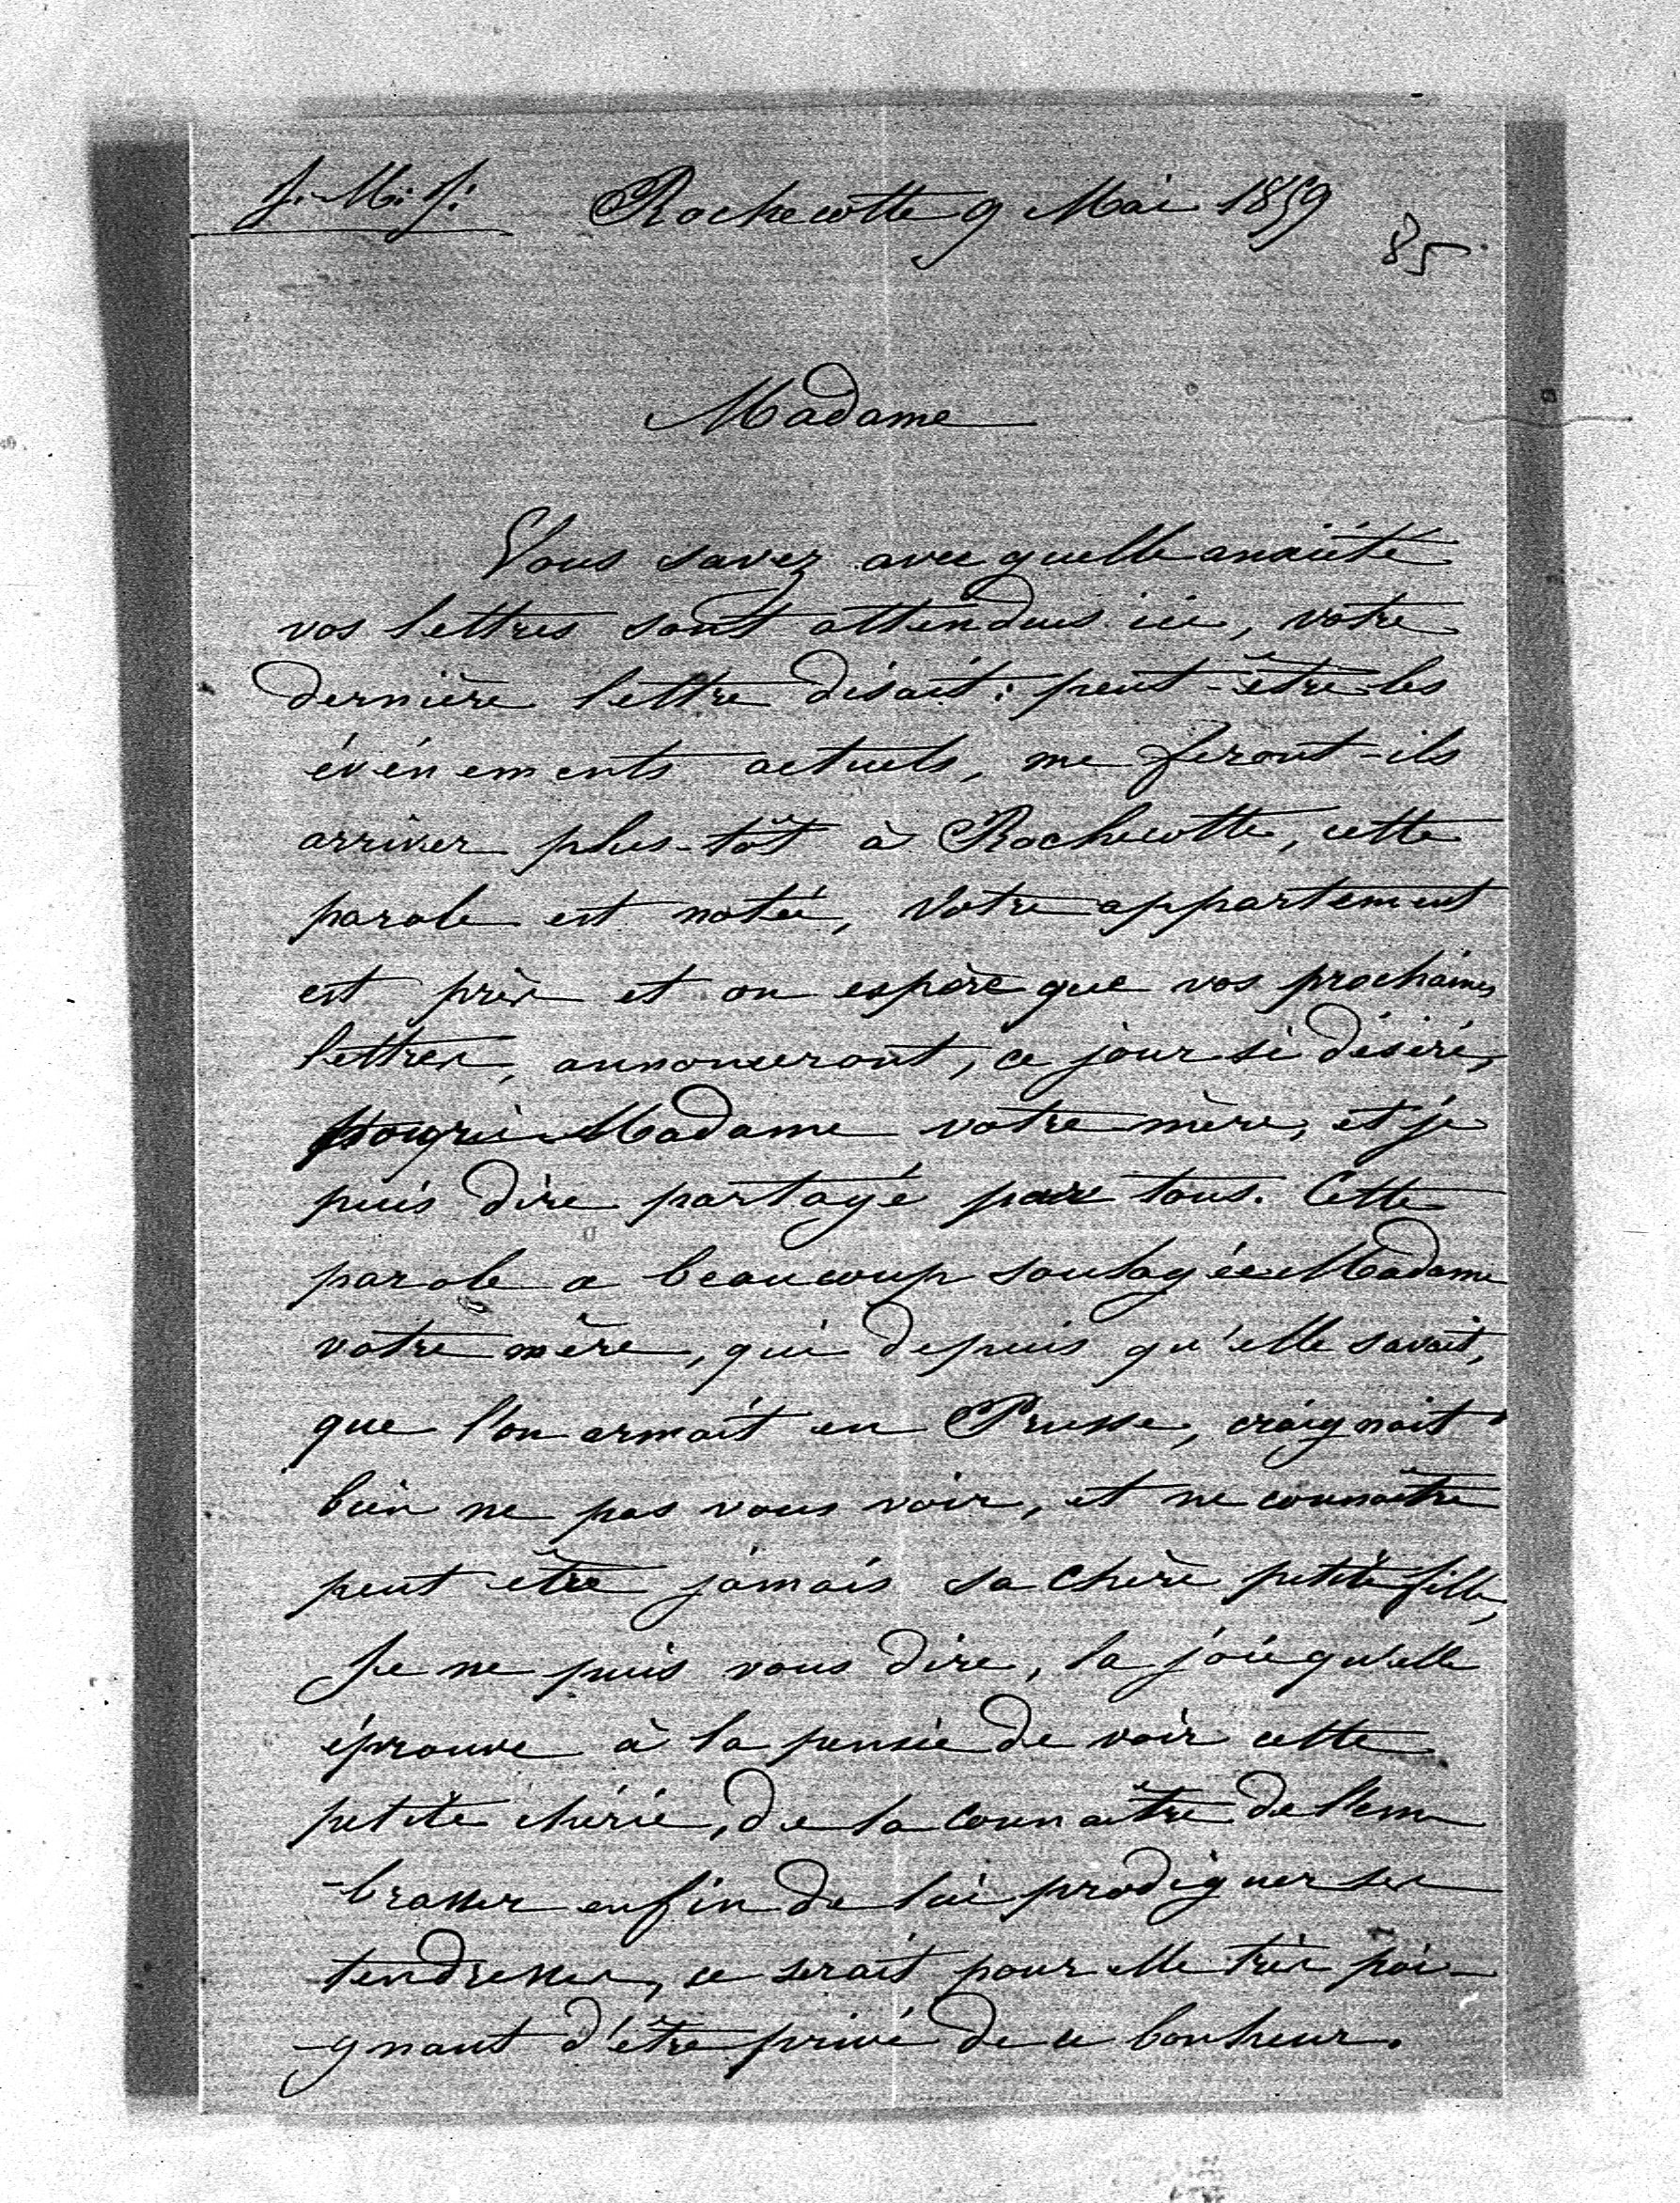 J. M. J. Rochecotte 9 Mai 1859
85
Madame
Vous savez avec quelle anxiété
vos lettres sont attendues ici, votre
dernière lettre disait: peut-être les
événements actuels, me feront-ils
arriver plus-tôt à Rochecotte, cette
parole est notée, votre appartement
est près et on espère que vos prochaines
lettres, annonceront, ce jour si désiré,
Madame votre mère, et je
puis dire partagé par tous. Cette
parole a beaucoup soulagée Madame
votre mère, qui depuis qu'elle savait,
que l'on armait en Prusse, craignait
bien ne pas vous voir, et ne connaître
peut être jamais sa chère petite fille,
Je ne puis vous dire, la joie qu'elle
éprouve à la pensée de voir cette
petite chérie, de la connaître de l'em
-brasser enfin de lui prodiguer ses
tendresses, ce serait pour elle très poi-
-gnant d'être privé de ce bonheur.